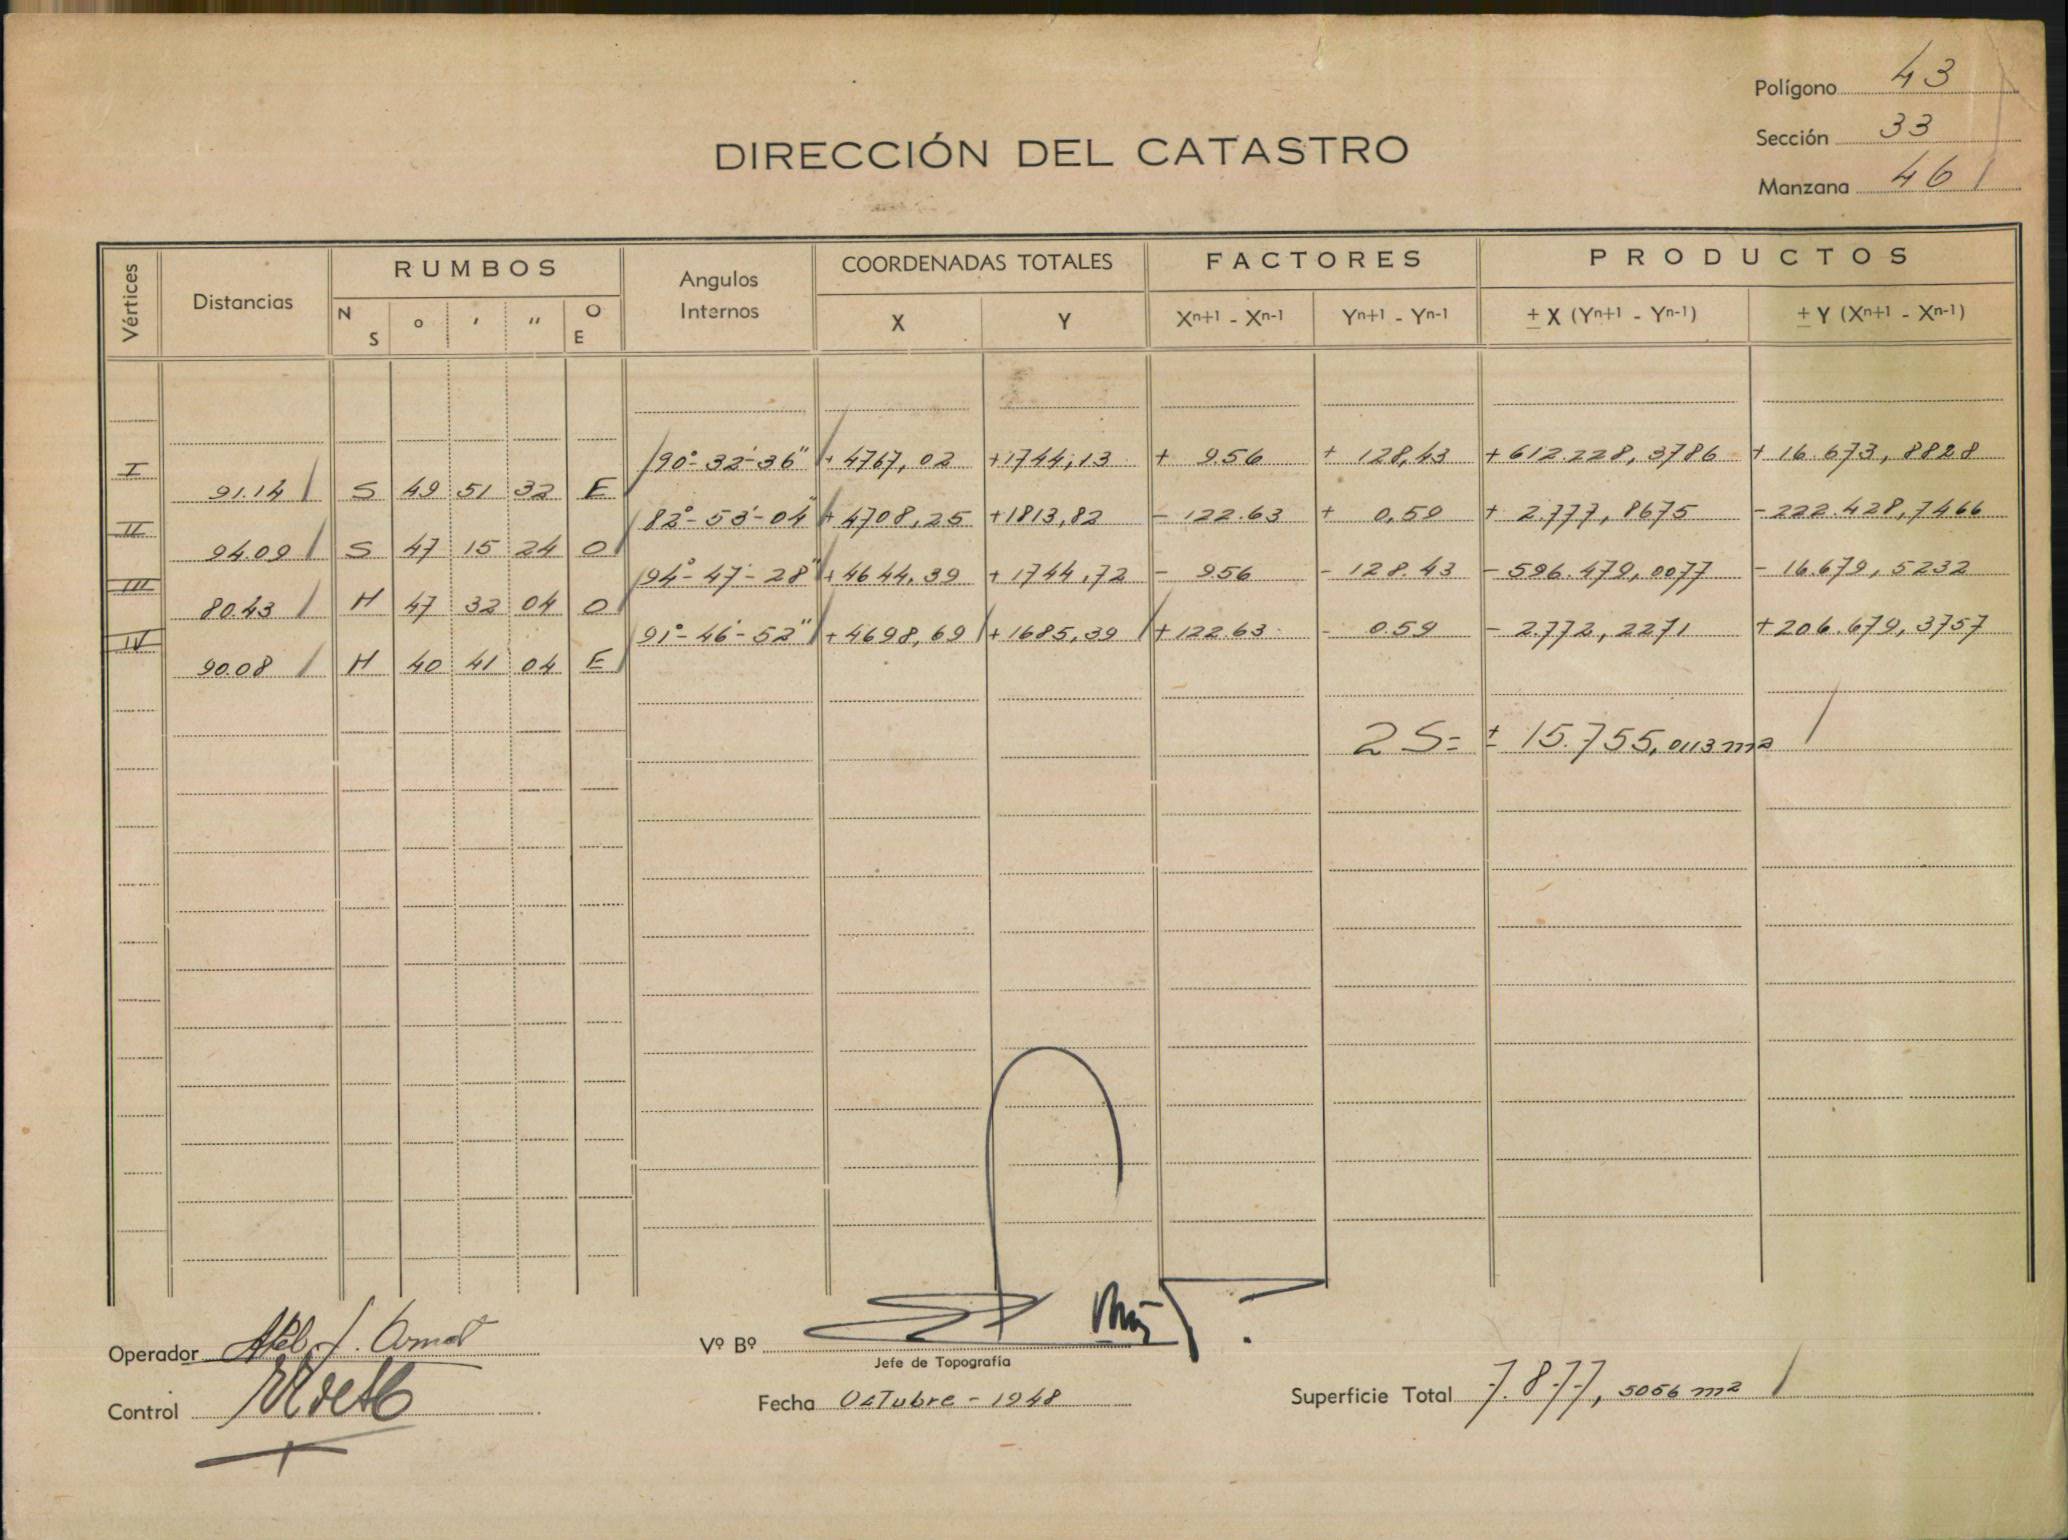 Polígono 43
Sección 33
Manzana 46
DIRECCIÓN DEL CATASTRO
Vértices Distancias RUMBOS Angulos Internos COORDENADAS TOTALES FACTORES PRODUCTOS
N S ° ' " O E X Y Xn+1 - Xn-1 Yn+1 - Yn-1 ± X (Yn+1 - Yn-1) ± Y (Xn+1 - Xn-1)
I 90°-32'-36" + 4767,02 +1744,13 + 9.56 + 128,43 +612.228,3786 + 16.673,8828
91.14 S 49 51 32 E
II 82°-53'-04" +4708,25 +1813,82 - 122.63 + 0,59 + 2.777,8675 -222.428,7466
94.09 S 47 15 24 O
III 94°-47'-28" +4644,39 +1744,72 - 956 - 128.43 - 596.479,0077 - 16.679,5232
80.43 N 47 32 04 O
IV 91°-46'-52" +4698,69 +1685,39 +122.63 - 0.59 - 2.772,2271 +206.679,3757
90.08 N 40 41 04 E
2S= ± 15.755,0113 m2
Operador
Control
Vº Bº
Jefe de Topografía
Fecha Octubre - 1948
Superficie Total 7.877,5056 m2